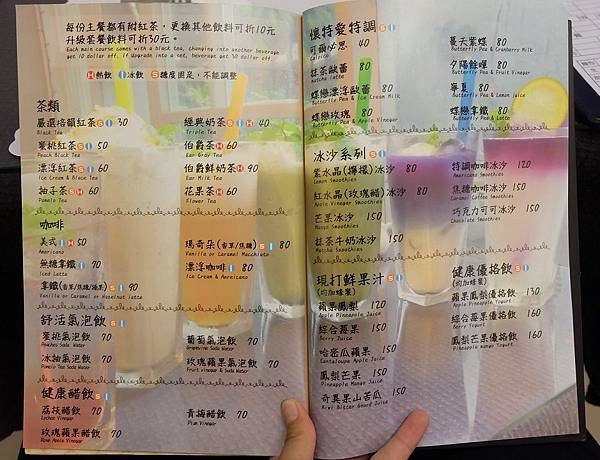 每份主餐都有附紅茶，更換其他飲料可折10元
升級套餐飲料可折30元。
Each main course comes with a black tea, changing into another beverage
get 10 dollar off. If Upgrade into a set, beverage get 30 dollar off.
H熱飲 I冰飲 S糖度固定，不能調整
茶類
嚴選培韻紅茶 S I 30
Black Tea
蜜桃紅茶 S I 50
Peach Black Tea
漂浮紅茶 S I 60
Ice Cream & Black Tea
柚子茶 S H 60
Pomelo Tea
經典奶茶 S I H 40
Triple Tea
伯爵茶 H 60
Ear Gray Tea
伯爵鮮奶茶 H 90
Ear Milk Tea
花果茶 H 60
Flower Tea
咖啡
美式 I H 50
Americano
無糖拿鐵 I 70
Iced Latte
拿鐵(香草/焦糖/榛果) S I 90
Vanilla or Caramel or Hazelnut latte
瑪奇朵(香草/焦糖) S I 80
Vanilla or Caramel Macchiato
漂浮咖啡 I 80
Ice Cream & Americano
舒活氣泡飲 S I
蜜桃氣泡飲 70
Peaches Soda Water
冰柚氣泡飲 70
Pomelo Tea Soda Water
葡萄氣泡飲 70
Grapevine Soda Water
玫瑰蘋果氣泡飲 70
Fruit vinegar & Soda Water
健康醋飲 S I
荔枝醋飲 70
Lychee Vinegar
玫瑰蘋果醋飲 70
Rose Apple Vinegar
青梅醋飲 70
Plum Vinegar
懷特愛特調 S I
可爾必思 40
Calpico
抹茶歐蕾 80
matcha latte
蝶戀漂浮歐蕾 80
Butterfly Pea & Ice Cream Milk
蝶戀玫瑰 80
Butterfly Pea & Apple Vinegar
蔓天紫蝶 80
Butterfly Pea & Cranberry Milk
夕陽餘暉 80
Butterfly Pea & Fruit Vinegar
寧夏 80
Butterfly Pea & Lemon juice
蝶戀拿鐵 80
Butterfly Pea & Latte
冰沙系列 S I
紫水晶(檸檬)冰沙 80
Lemon Smoothies
紅水晶(玫瑰醋)冰沙 80
Apple Vinegar Smoothies
芒果冰沙 150
Mango Smoothies
抹茶牛奶冰沙 150
Matcha Smoothies
特調咖啡冰沙 120
Americano Smoothies
焦糖咖啡冰沙 150
Caramel Coffee Smoothies
巧克力可可冰沙 150
Chocolate Smoothies
現打鮮果汁 S I
(均加蜂蜜)
蘋果鳳梨 120
Apple Pineapple Juice
綜合莓果 150
Berry Juice
哈密瓜蘋果 150
Cantaloupe Apple Juice
鳳梨芒果 150
Pineapple Mango Juice
奇異果山苦瓜 150
Kiwi Bitter Gourd Juice
健康優格飲 S I
(均加蜂蜜)
蘋果鳳梨優格飲 130
Apple Pineapple Yogurt
綜合莓果優格飲 160
Berry Yogurt
鳳梨芒果優格飲 160
Pineapple mango Yogurt